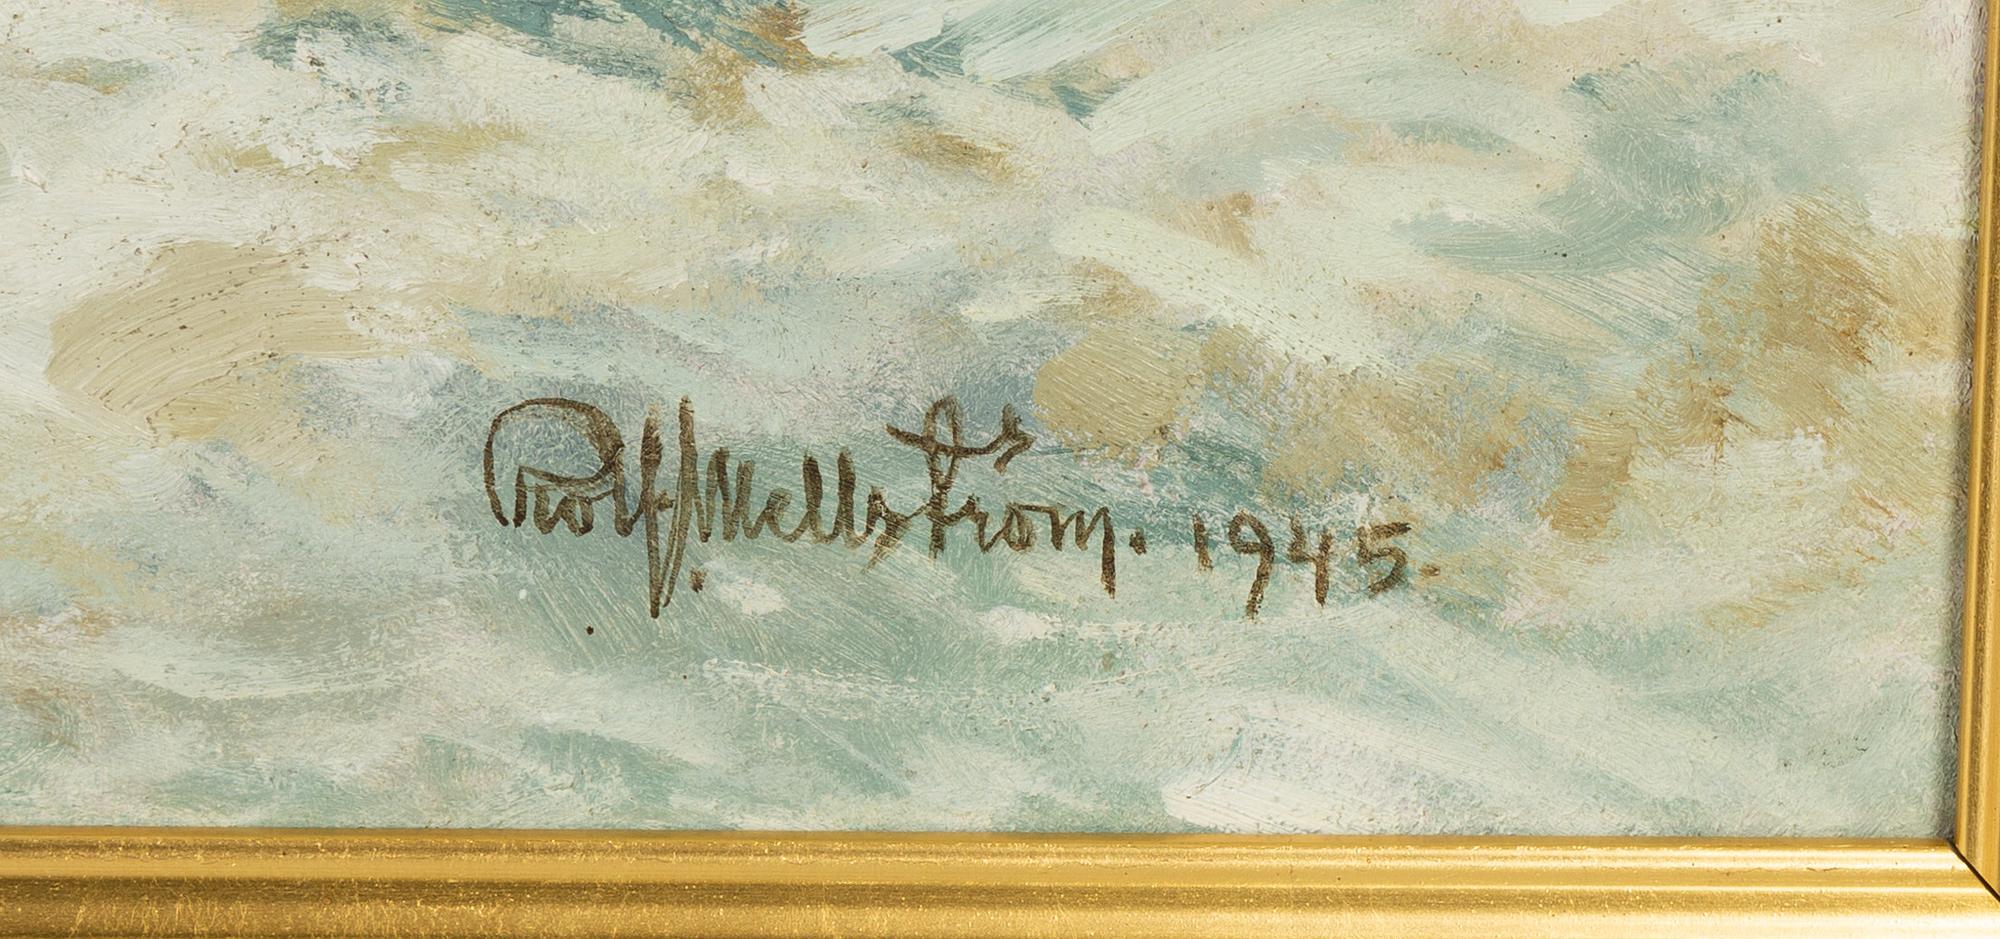 Rolf Mellström. 1945.